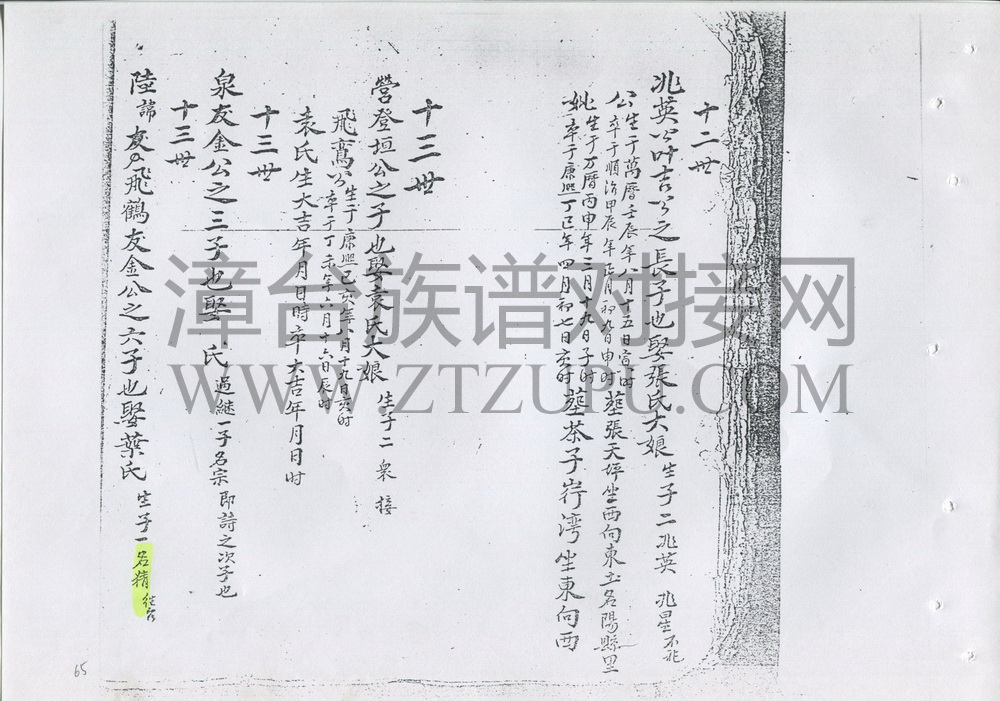 十二世
兆英公叶吉公之長子也娶張氏大娘 生子二兆英 兆星
公生于萬曆壬辰年八月十五日寅时
卒于順治甲辰年正月初九日申时 葬張天坪坐西向東土名陽縣里
妣生于万曆丙申年三月十九日子时
卒于康熙丁巳年四月初七日亥时 葬茶子岃湾坐東向西
十三世
營登垣公之子也娶袁氏大娘 生子二 衆 接
飛鸞公生于康熙己亥年八月十九日亥时
卒于丁未年六月十六日辰时
袁氏生大吉年月日時卒大吉年月日时
十三世
泉友金公之三子也娶 氏 過継一子名宗 即詩之次子也
十三世
陸諦友 飛鶴友金公之六子也娶葉氏 生子一名精
65
漳台族谱对接网
WWW.ZTZUPU.COM